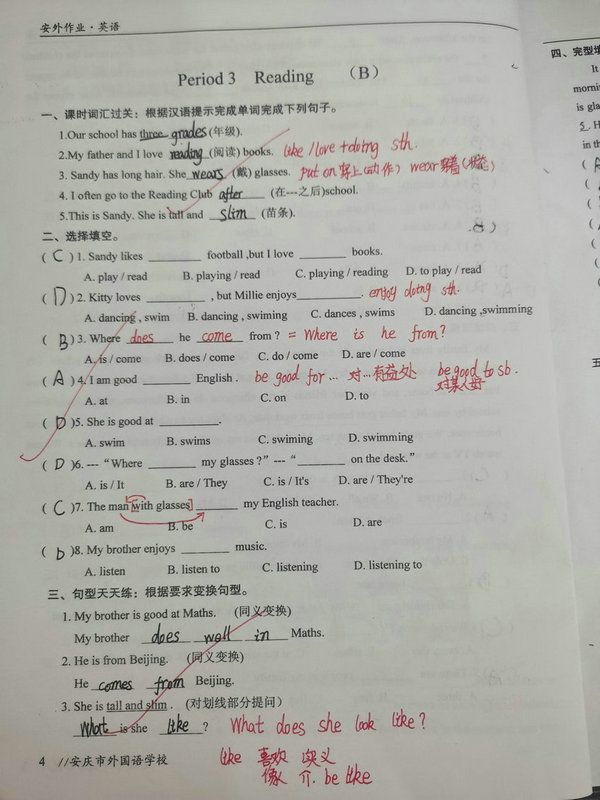 安外作业·英语
Period 3 Reading （B）
一、课时词汇过关：根据汉语提示完成单词完成下列句子。
1.Our school has three grades (年级).
2.My father and I love reading (阅读) books. like/love+doing sth.
3. Sandy has long hair. She wears (戴) glasses. put on 穿上(动作) wear 穿着(状态)
4. I often go to the Reading Club after (在---之后)school.
5.This is Sandy. She is tall and slim (苗条).
二、选择填空。
( C ) 1. Sandy likes ________ football ,but I love ________ books.
A. play / read B. playing / read C. playing / reading D. to play / read
( D ) 2. Kitty loves ________ , but Millie enjoys________. enjoy doing sth.
A. dancing , swim B. dancing , swiming C. dances , swims D. dancing ,swimming
( B ) 3. Where does he come from ? = Where is he from?
A. is / come B. does / come C. do / come D. are / come
( A ) 4. I am good ________ English . be good for … 对…有益处 be good to sb. 对某人好
A. at B. in C. on D. to
( D )5. She is good at ________.
A. swim B. swims C. swiming D. swimming
( D )6. --- “Where ________ my glasses ?” --- “________ on the desk.”
A. is / It B. are / They C. is / It's D. are / They're
( C )7. The man with glasses ________ my English teacher.
A. am B. be C. is D. are
( b )8. My brother enjoys ________ music.
A. listen B. listen to C. listening D. listening to
三、句型天天练：根据要求变换句型。
1. My brother is good at Maths. (同义变换)
My brother does well in Maths.
2. He is from Beijing. (同义变换)
He comes from Beijing.
3. She is tall and slim . (对划线部分提问)
What is she like ? What does she look like?
like 喜欢 实义
像 介. be like
4 //安庆市外国语学校
四、完型填
It
morni
is gla
5. H
in th
五